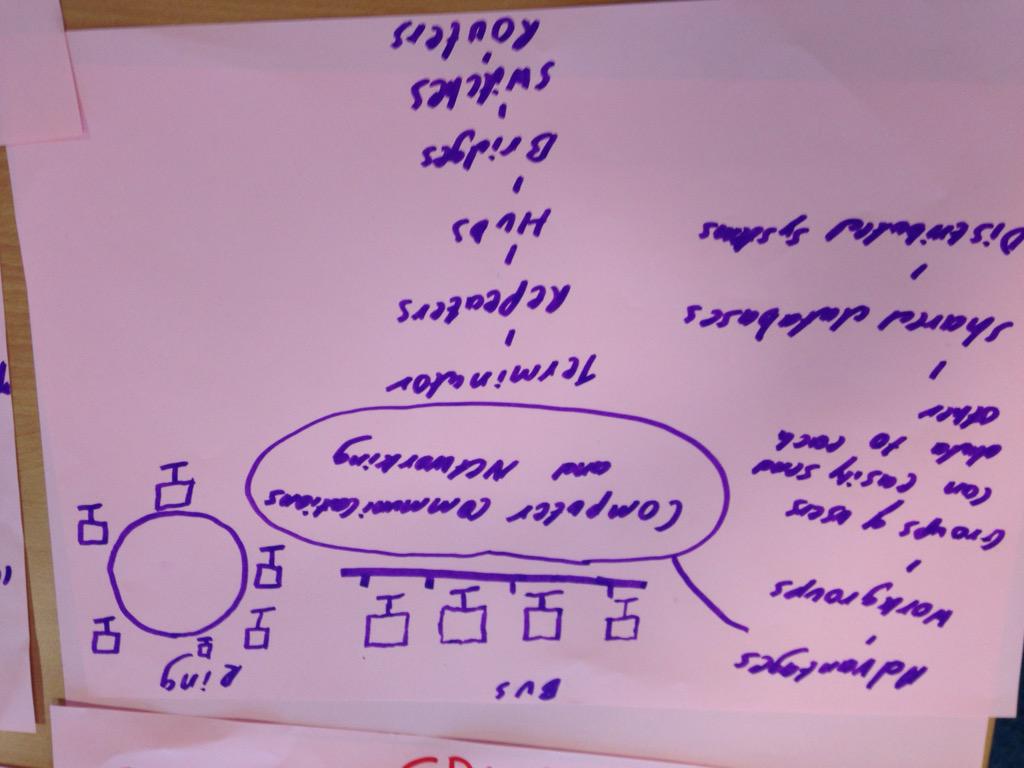 Advantages
Workgroups
Groups of users
can easily send
data to each
other
Shared databases
Distributed systems
Bus
Ring
Computer Communications
and Networking
Terminator
Repeaters
Hubs
Bridges
Switches
Routers